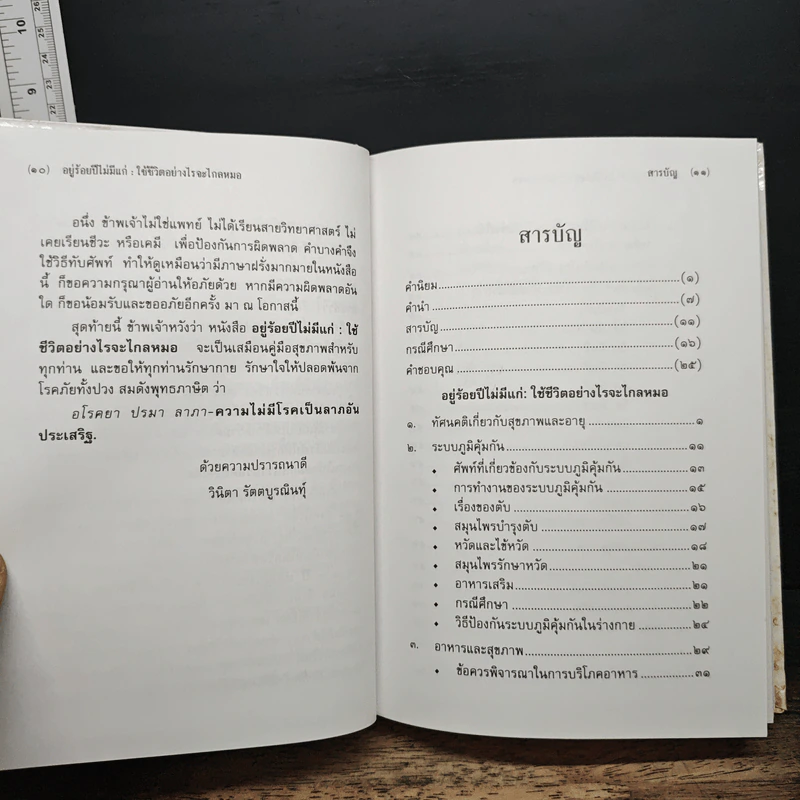 10
9
26
25
24
23
22
(๑๐) อยู่ร้อยปีไม่มีแก่ : ใช้ชีวิตอย่างไรจะไกลหมอ
อนึ่ง ข้าพเจ้าไม่ใช่แพทย์ ไม่ได้เรียนสายวิทยาศาสตร์ ไม่
เคยเรียนชีวะ หรือเคมี เพื่อป้องกันการผิดพลาด คำบางคำจึง
ใช้วิธีทับศัพท์ ทำให้ดูเหมือนว่ามีภาษาฝรั่งมากมายในหนังสือ
นี้ ก็ขอความกรุณาผู้อ่านให้อภัยด้วย หากมีความผิดพลาดอัน
ใด ก็ขอน้อมรับและขออภัยอีกครั้ง มา ณ โอกาสนี้
สุดท้ายนี้ ข้าพเจ้าหวังว่า หนังสือ อยู่ร้อยปีไม่มีแก่ : ใช้
ชีวิตอย่างไรจะไกลหมอ จะเป็นเสมือนคู่มือสุขภาพสำหรับ
ทุกท่าน และขอให้ทุกท่านรักษากาย รักษาใจให้ปลอดพ้นจาก
โรคภัยทั้งปวง สมดังพุทธภาษิต ว่า
อโรคยา ปรมา ลาภา-ความไม่มีโรคเป็นลาภอัน
ประเสริฐ.
ด้วยความปรารถนาดี
วินิตา รัตตบูรณินทุ์
สารบัญ (๑๑)
สารบัญ
คำนิยม..........(๑)
คำนำ..........(๗)
สารบัญ..........(๑๑)
กรณีศึกษา..........(๑๖)
คำขอบคุณ..........(๒๕)
อยู่ร้อยปีไม่มีแก่: ใช้ชีวิตอย่างไรจะไกลหมอ
๑. ทัศนคติเกี่ยวกับสุขภาพและอายุ..........๑
๒. ระบบภูมิคุ้มกัน..........๑๑
⬩ ศัพท์ที่เกี่ยวข้องกับระบบภูมิคุ้มกัน..........๑๓
⬩ การทำงานของระบบภูมิคุ้มกัน..........๑๕
⬩ เรื่องของตับ..........๑๖
⬩ สมุนไพรบำรุงตับ..........๑๗
⬩ หวัดและไข้หวัด..........๑๘
⬩ สมุนไพรรักษาหวัด..........๒๑
⬩ อาหารเสริม..........๒๑
⬩ กรณีศึกษา..........๒๒
⬩ วิธีป้องกันระบบภูมิคุ้มกันในร่างกาย..........๒๔
๓. อาหารและสุขภาพ..........๒๙
⬩ ข้อควรพิจารณาในการบริโภคอาหาร..........๓๑